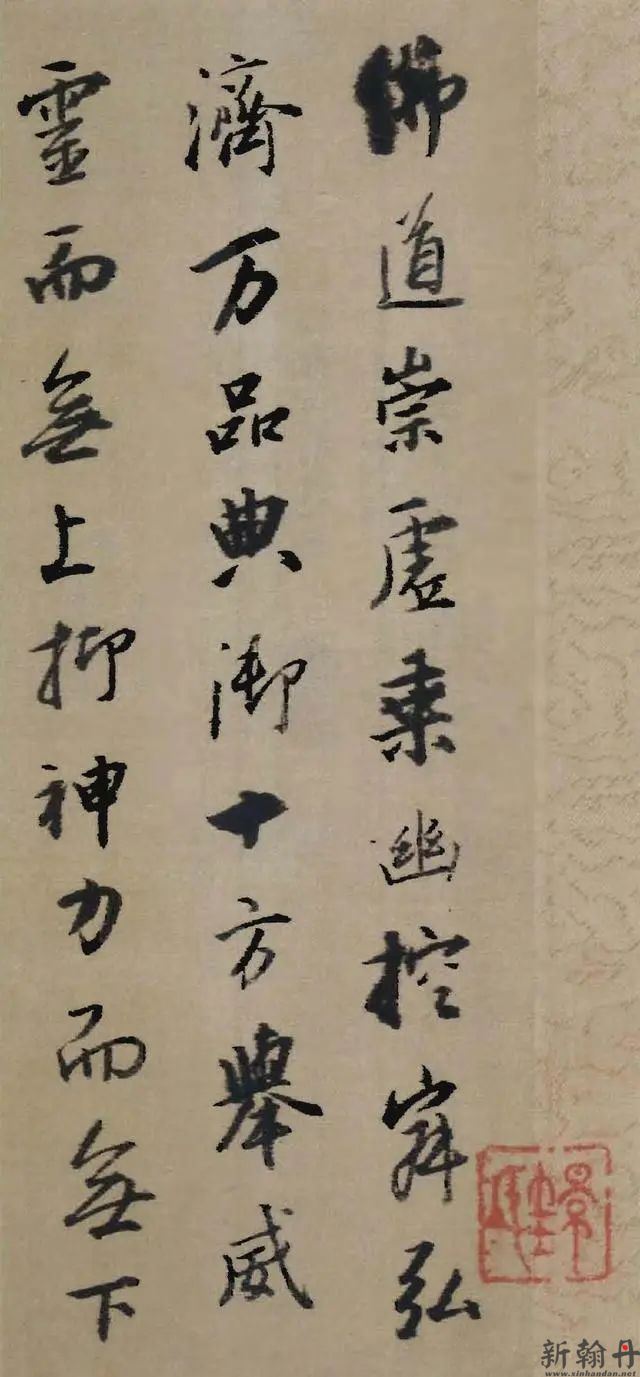 佛道崇虛乘幽控寂弘
濟万品典御十方舉威
靈而無上抑神力而無下
新翰丹
www.xinhandan.net